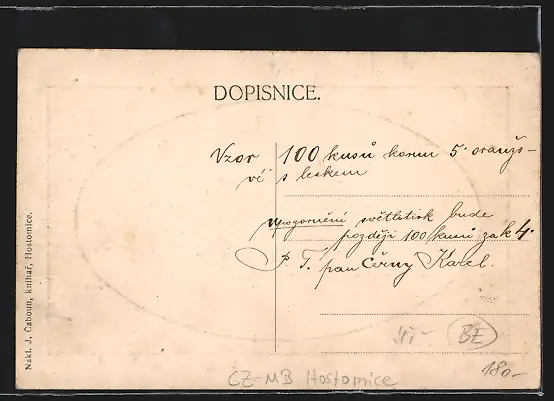 DOPISNICE.
Vzor 100 kusů korun 5· oranžo-
vé s leskem
Upozornění světlotisk bude
později 100 kusů za k 4·
P. T. pan Černý Karel.
Nakl. J. Čaboun, knihař, Hostomice.
BE
180-
CZ-MB Hostomice